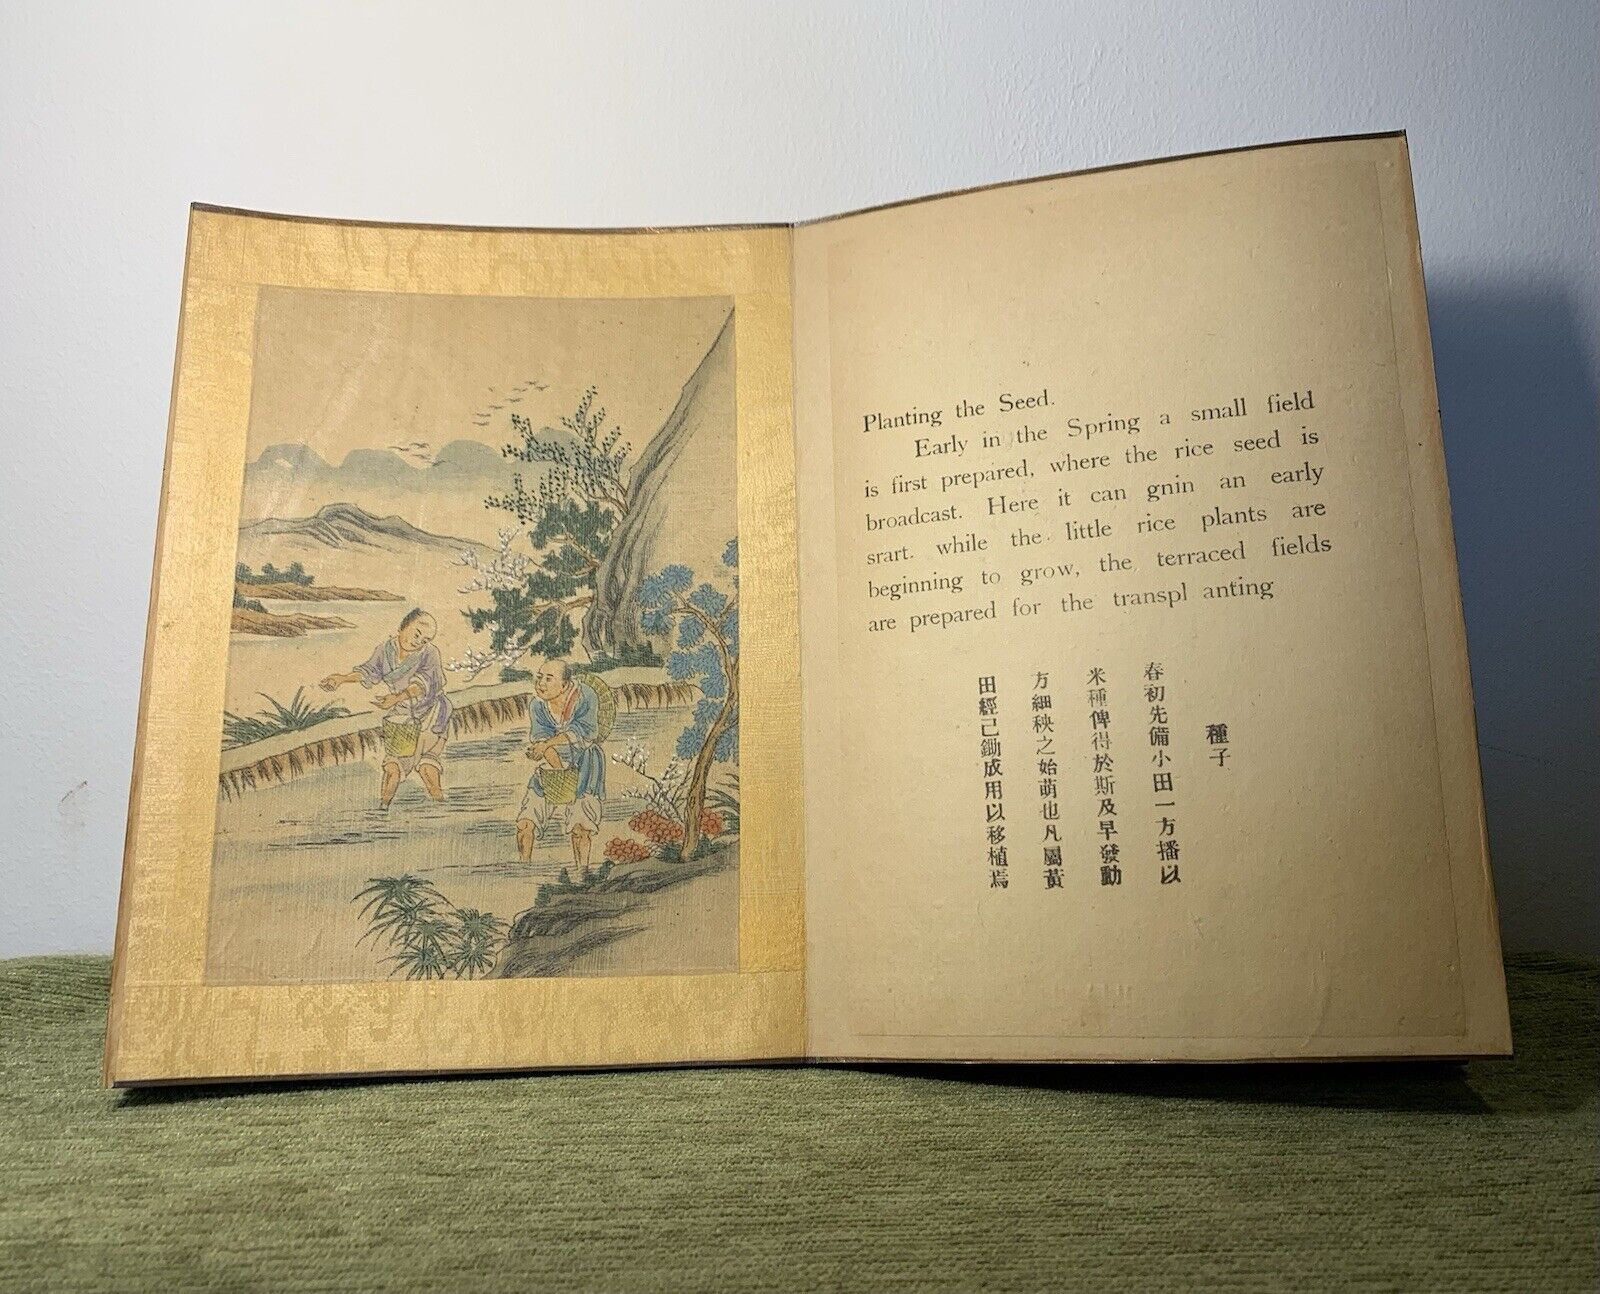 Planting the Seed.
Early in the Spring a small field
is first prepared, where the rice seed is
broadcast. Here it can gnin an early
srart. while the little rice plants are
beginning to grow, the terraced fields
are prepared for the transpl anting
種子
春初先備小田一方播以
米種俾得於斯及早發動
方細秧之始萌也凡屬黃
田經己鋤成用以移植焉